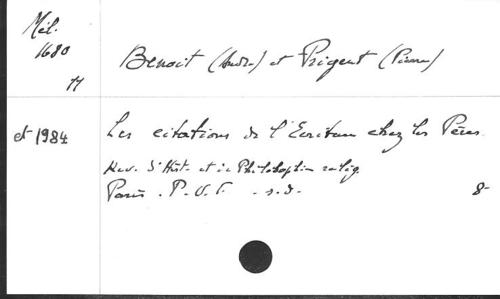 Mél.
1680
11
Benoit (André) et Prigent (Pierre)
et 1984
Les citations de l'Ecriture chez les Pères.
Rev. d'Hist. et de Philosophie relig.
Paris. P.U.F. - s.d. 8-